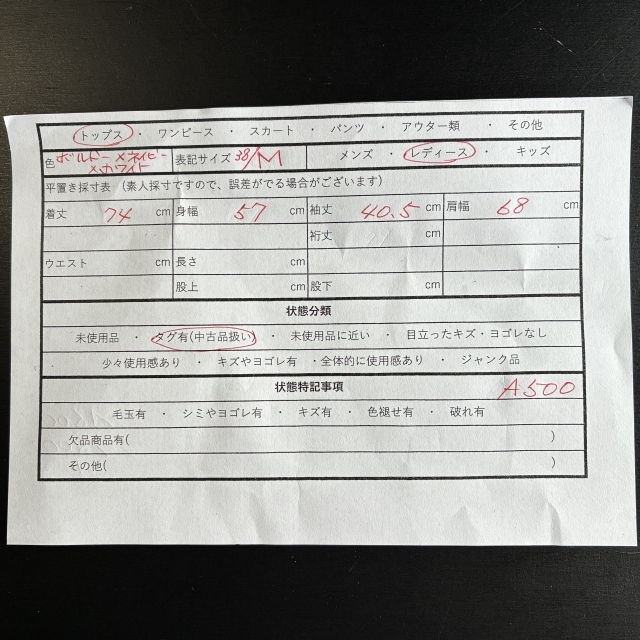 トップス ・ ワンピース ・ スカート ・ パンツ ・ アウター類 ・ その他
色 ボルドー×ネイビー×ホワイト 表記サイズ 38/M メンズ ・ レディース ・ キッズ
平置き採寸表 (素人採寸ですので、誤差がでる場合がございます)
着丈 74 cm 身幅 57 cm 袖丈 40.5 cm 肩幅 68 cm
裄丈 cm
ウエスト cm 長さ cm
股上 cm 股下 cm
状態分類
未使用品 ・ タグ有(中古品扱い) ・ 未使用品に近い ・ 目立ったキズ・ヨゴレなし
少々使用感あり ・ キズやヨゴレ有 ・全体的に使用感あり ・ ジャンク品
状態特記事項 A500
毛玉有 ・ シミやヨゴレ有 ・ キズ有 ・ 色褪せ有 ・ 破れ有
欠品商品有( )
その他( )